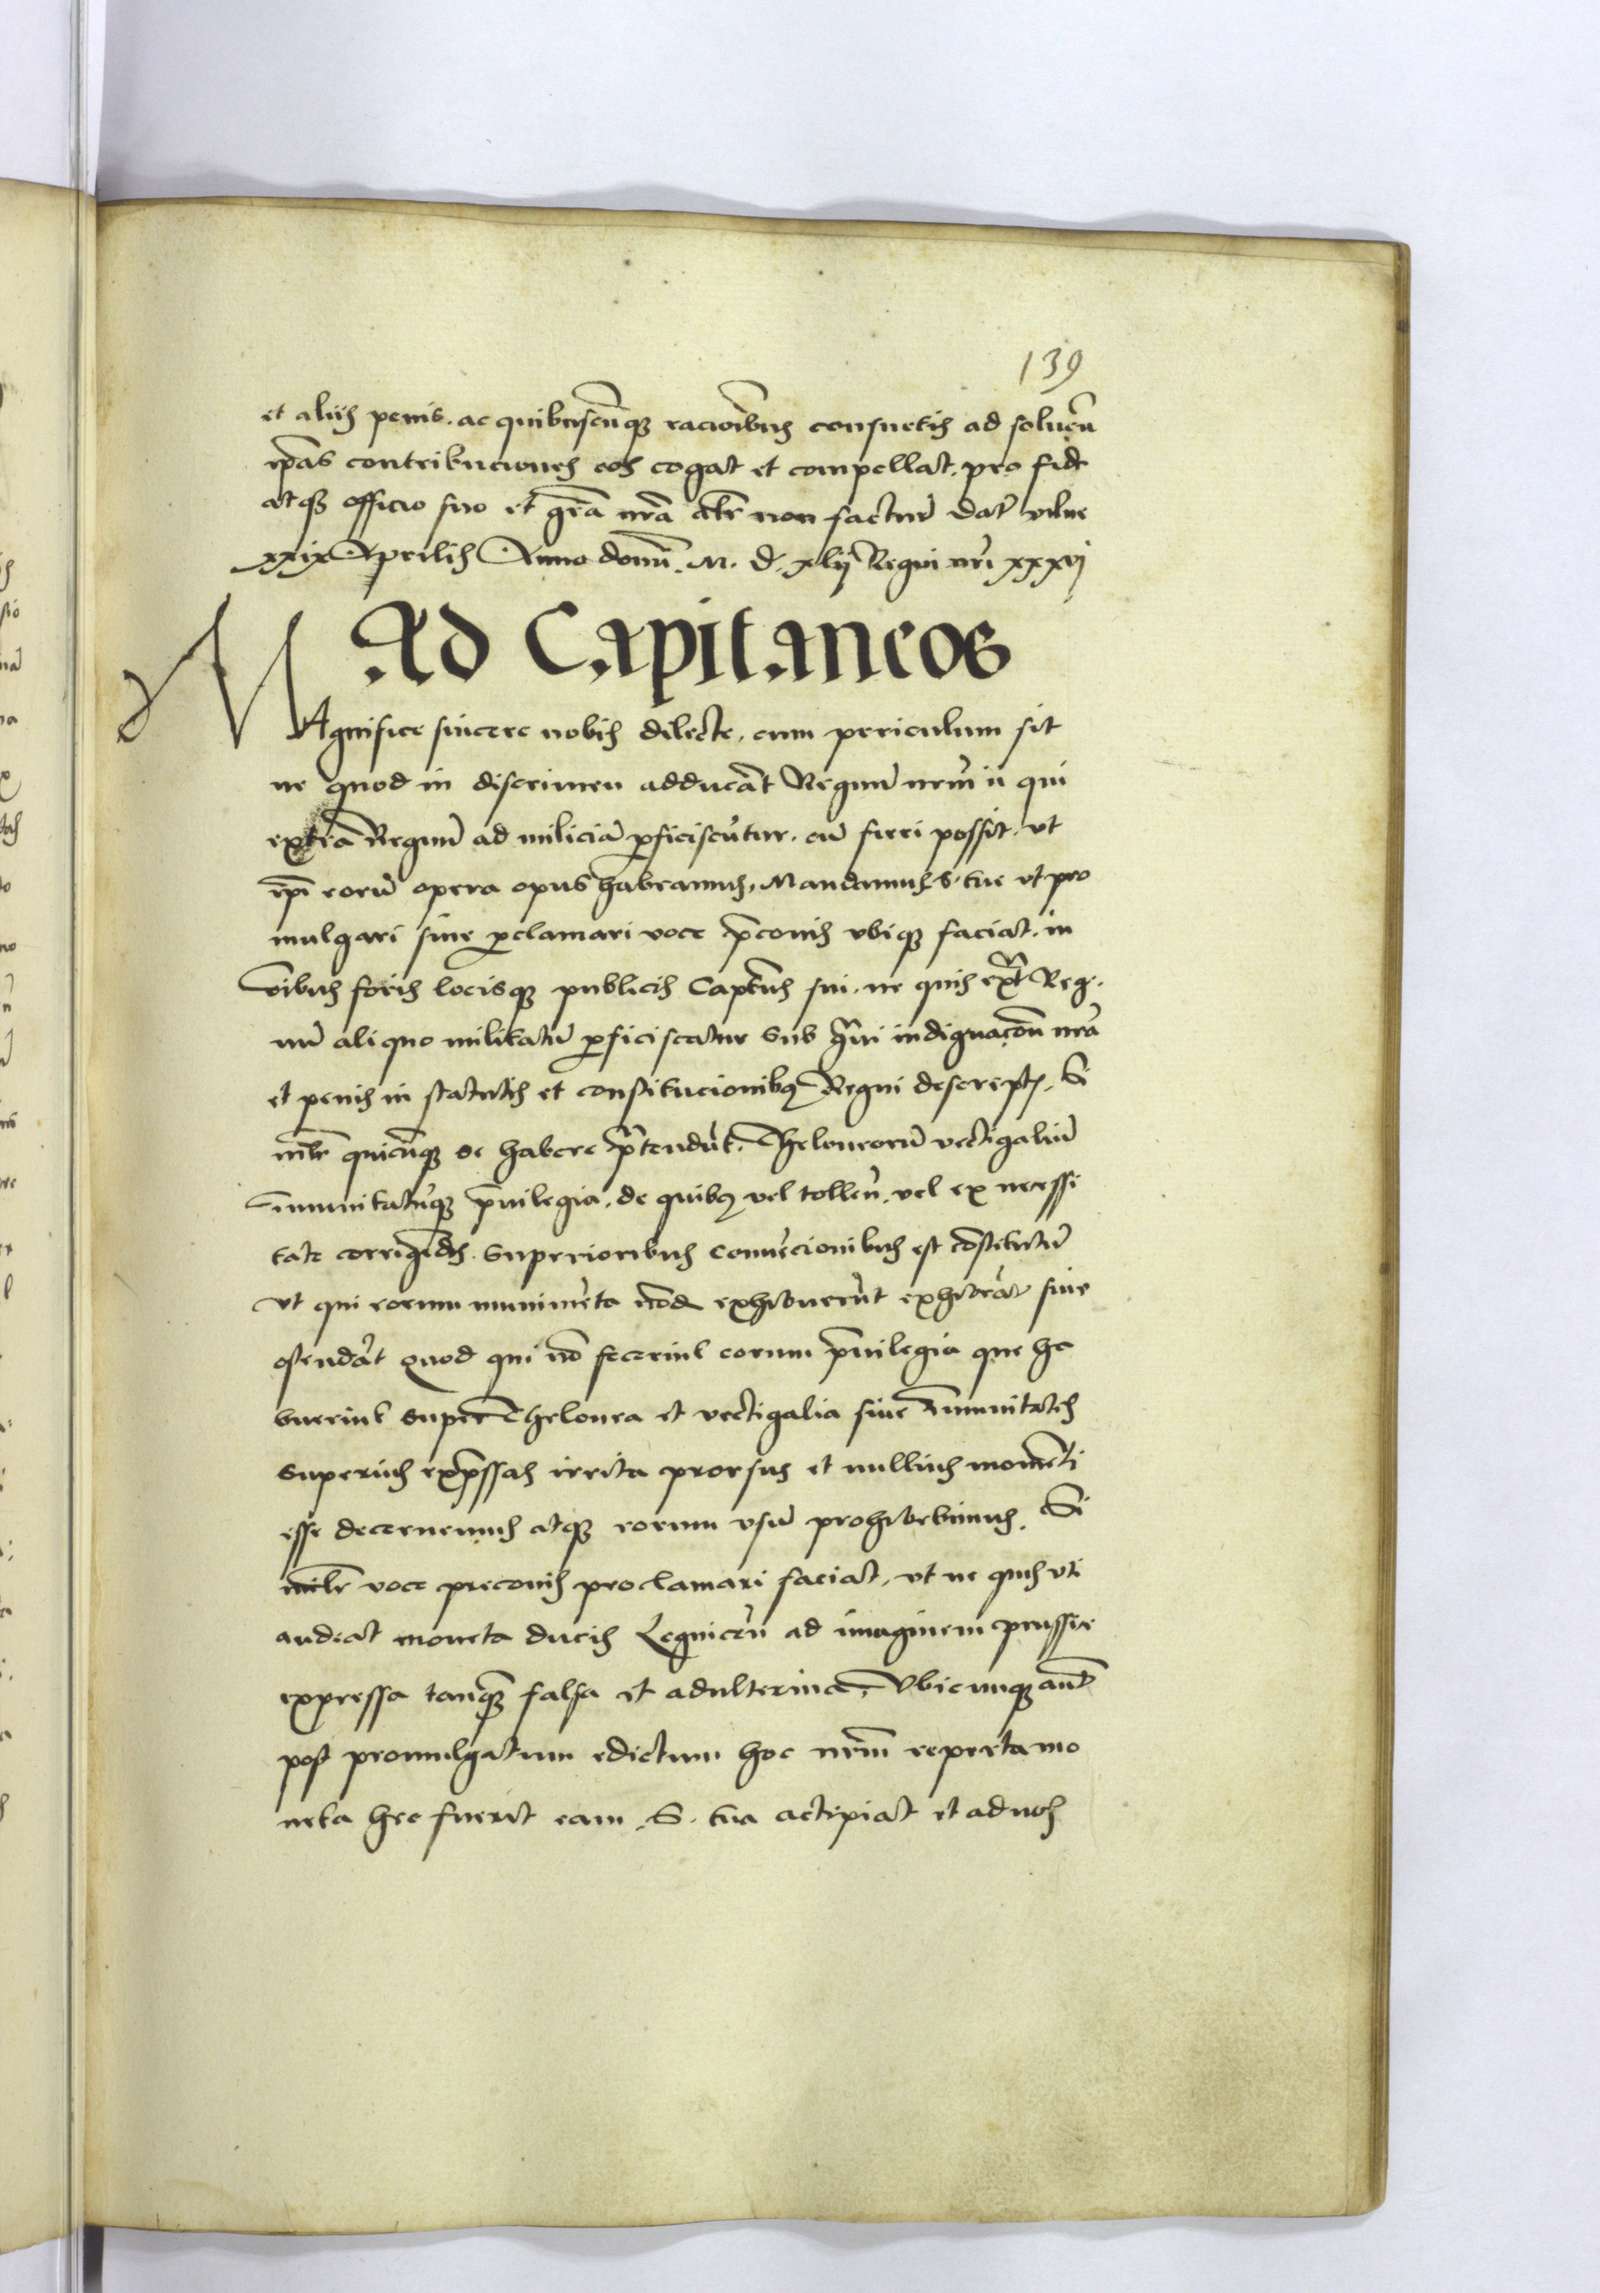 139
et aliis penis. ac quibuscūqꝫ racioībus consuetis ad soluēn
ip̄as contribuciones eos cogat et compellat. pro fidē
atqꝫ officio suo et grā nrā alr̄ non factur̄ dat̄ vilne
xxix Aprilis Anno domī. M. d. xlij Regni nr̄i xxxvj
Ad Capitaneos
MAgnifice sincere nobis dilecte. cum periculum sit
ne quod in discrimen adducāt Regnū nrm̄ ii qui
extra Regnū ad miliciā ꝓficiscūtur. cū fieri possit. vt
ip̄i eorū opera opus habeamus. Mandamus S. tue vt pro
mulgari siue ꝓclamari voce p̄conis vbiqꝫ faciat. in
oībus foris locisqꝫ publicis Captūs sui. ne quis ext̄ Reg.
nū aliquo militatū ꝓficiscatur sub gr̄ui indignacōn nrā
et penis in statutis et constitucionibꝫ Regni descriptꝭ. Si
mlr̄ quicūqꝫ se habere p̄tendūt. Theloneorū vectigaliū
īmunitatūqꝫ p̄uilegia. de quibꝫ vel tollen̄. vel ex necessi
tate corrigēdis. superioribus conuēcionibus est cōstitutū
vt qui eorum munimēta nōd exhibuerūt exhibeāt siue
ostendāt Quod qui nō fecerint eorum p̄uilegia que ha
buerint super Thelonea et vectigalia siue īmunitates
superius exp̄ssas irrita prorsus et nullius momēti
esse decernemus atqꝫ eorum vsū prohibebimus. Si
milr̄ voce preconis proclamari faciat. vt ne quis vti
audeat moneta ducis Legnicen̄ ad imaginem prussie
expressa tanqꝫ falsa et adulterina. Vbicunqꝫ aūt
post promulgatum edictum hoc nrm̄ reperta mo
neta hec fuerit eam. S. tua accipiat et ad nos